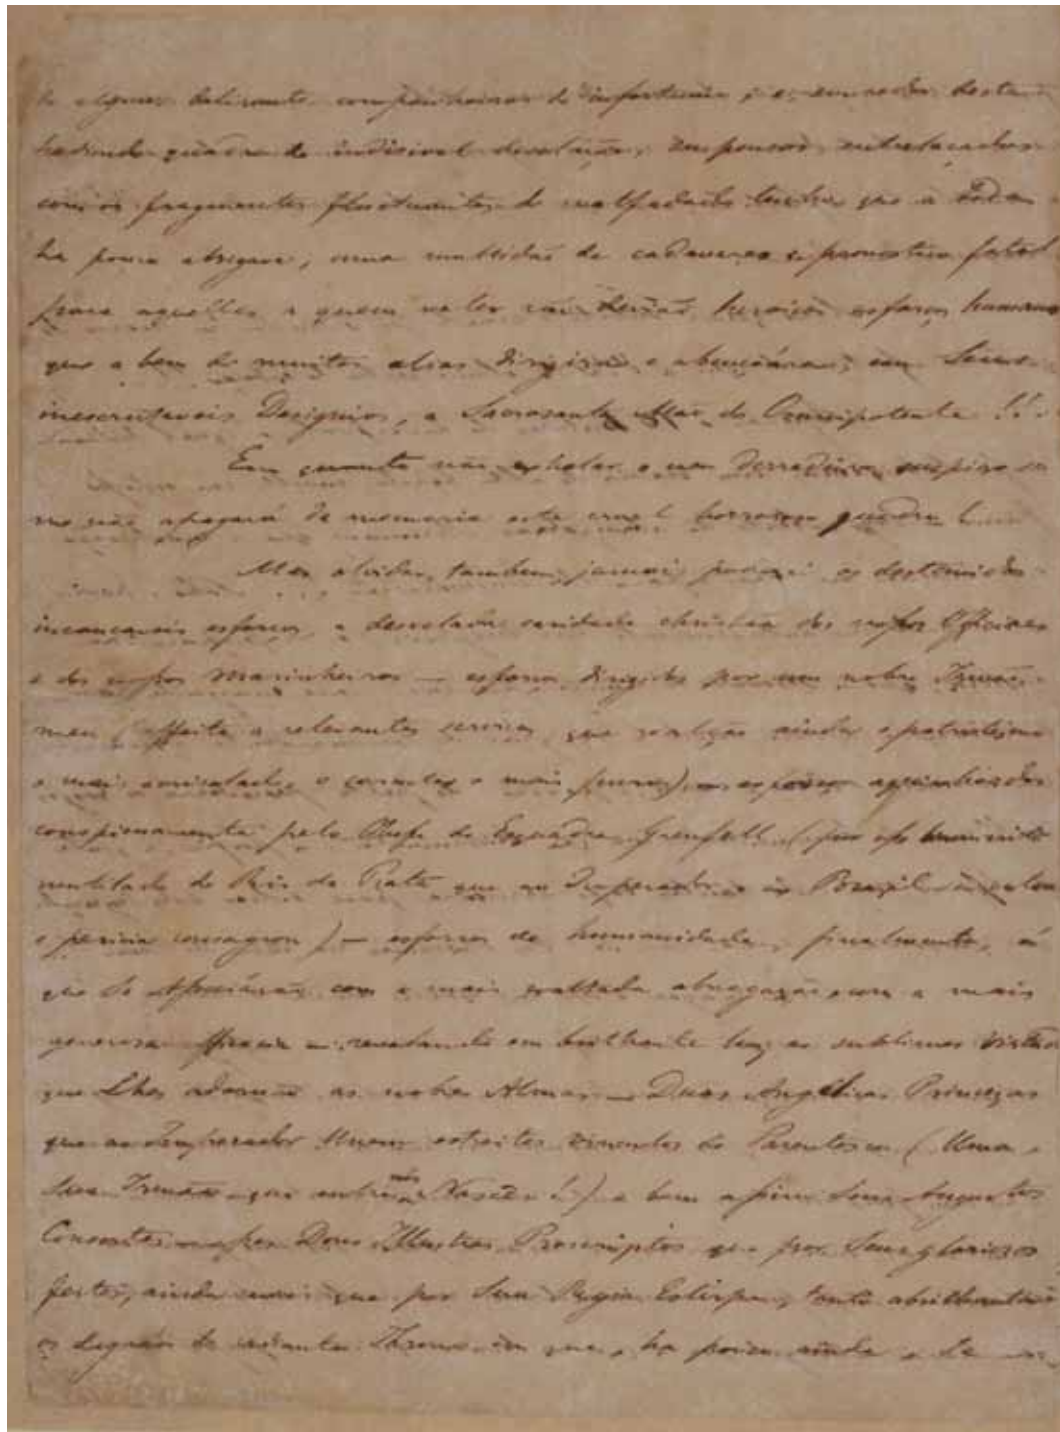 de alguns delirante companheiros de infortunio; e, em redor desta
hedionda quadra de indisivel desolação, suspensos entrelaçados
com os fragmentos fluctuantes do malfadado lenho que a todos
ha pouco abrigava, uma multidão de cadaveres e prognostico fatal
para aquelles a quem valer não heroicos esforços humanos
que a bem de muitos alias dirigirão e abençoárão, em Seus
inescrutaveis Designios, a Sacrosanta Mão do Omnipotente !!
Em quanto não exhalar o meu derradeiro suspiro se
me não apagará da memoria este cruel horroroso quadro!
Mas olvidar, tambem, jamais poderei os destemidos
incançaveis esforços, a desvelada caridade christãa dos nossos Officiaes
e dos nossos Marinheiros — esforços dirigidos por um nobre Irmão
meu (affeito a relevantes serviços que realção ainda o patriotismo
o mais o caracter o mais puro) — esforços
conspicuamente pelo Chefe de Esquadra Grenfell (
mutilado do Rio da Prata que ao Imperador e ao Brazil
e pericia consagrou) — esforços de humanidade, finalmente, á
que Se Associárão com a mais exaltada abnegação, com a mais
generosa efficacia — revelando em brilhante luz as sublimes virtudes
que Lhes adornão as nobres Almas — Duas Angelicas Princezas
que ao Imperador Unem estreitos vinculos de Parentesco (Uma
Sua Irmãa que entre nós Nasceo!) e bem assim Seus Augustos
Consortes — por Dous Illustres Proscriptos que por Seus gloriosos
feitos, ainda mais que por Sua Regia Estirpe, tanto abrilhantárão
os degráos do Throno em que, ha pouco ainda, Se